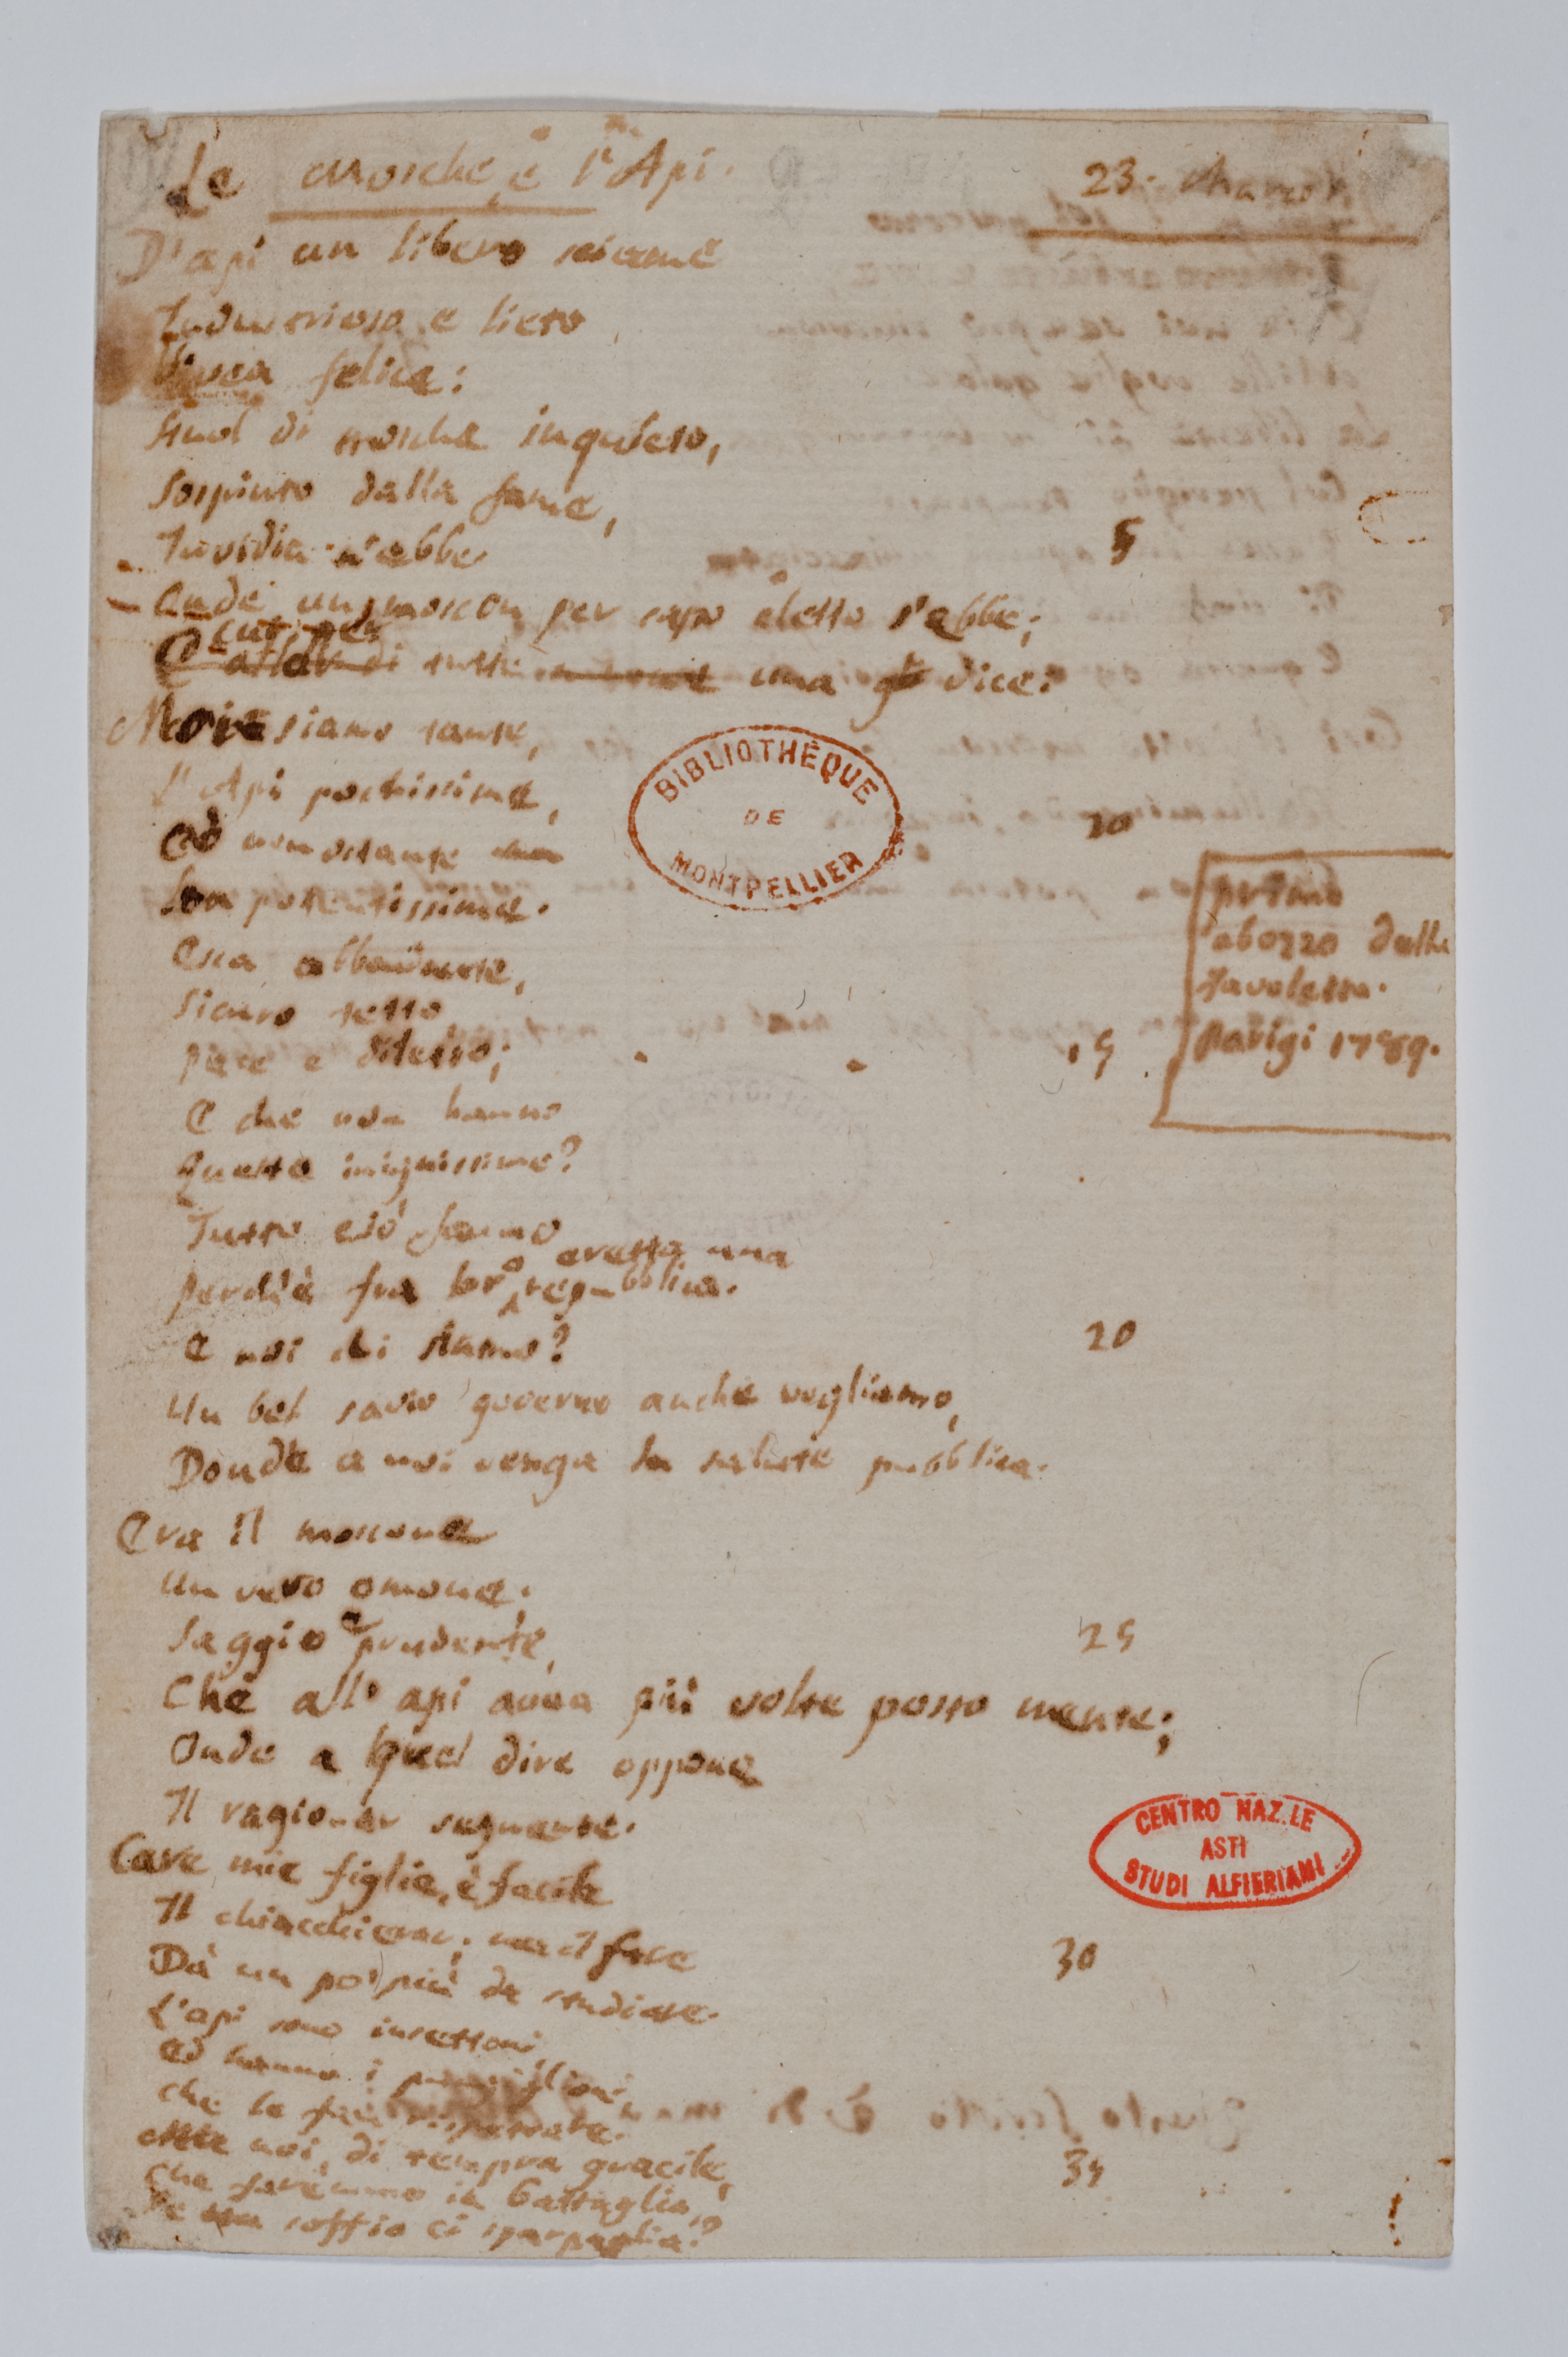 Le Mosche, e l'Api.
23. Marzo
D'api un libero sciame
Industrioso, e lieto
Vivea felice:
Stuol di mosche inquieto,
Sospinto dalla fame,
Invidia n'ebbe.
5
Onde un moscon per capo eletto s'ebbe;
cui, per
E attal di tutte una gli dice:
Noi siamo tante,
L'Api pochissime,
10
Ed nonostante
Son potentissime.
Esca abbondante,
Sicuro tetto
Pace e diletto;
15
E che non hanno
Queste iniquissime?
Tutto ciò fanno
eretta una
Perch'è fra loro repubblica.
E noi chi siamo?
20
Un bel savio governo anche vogliamo,
Donde a noi venga la salute pubblica.
Era il moscone
Un vero omone.
Saggio e prudente,
25
Che all'api avea più volte posto mente;
Onde a quel dire oppone
Il ragionar seguente.
Care mie figlie, è facile
Il chiacchierar; ma il fare
30
Dà un po' più da studiare.
L'api sono insettoni
Ed hanno i pungiglioni,
Che le fan rispettare.
Ma noi, di tempra gracile,
35
Che faremmo in battaglia,
Se un soffio ci sparpaglia?
primo
abozzo della
favoletta.
Parigi 1789.
BIBLIOTHÈQUE
DE
MONTPELLIER
CENTRO NAZ.LE
ASTI
STUDI ALFIERIANI